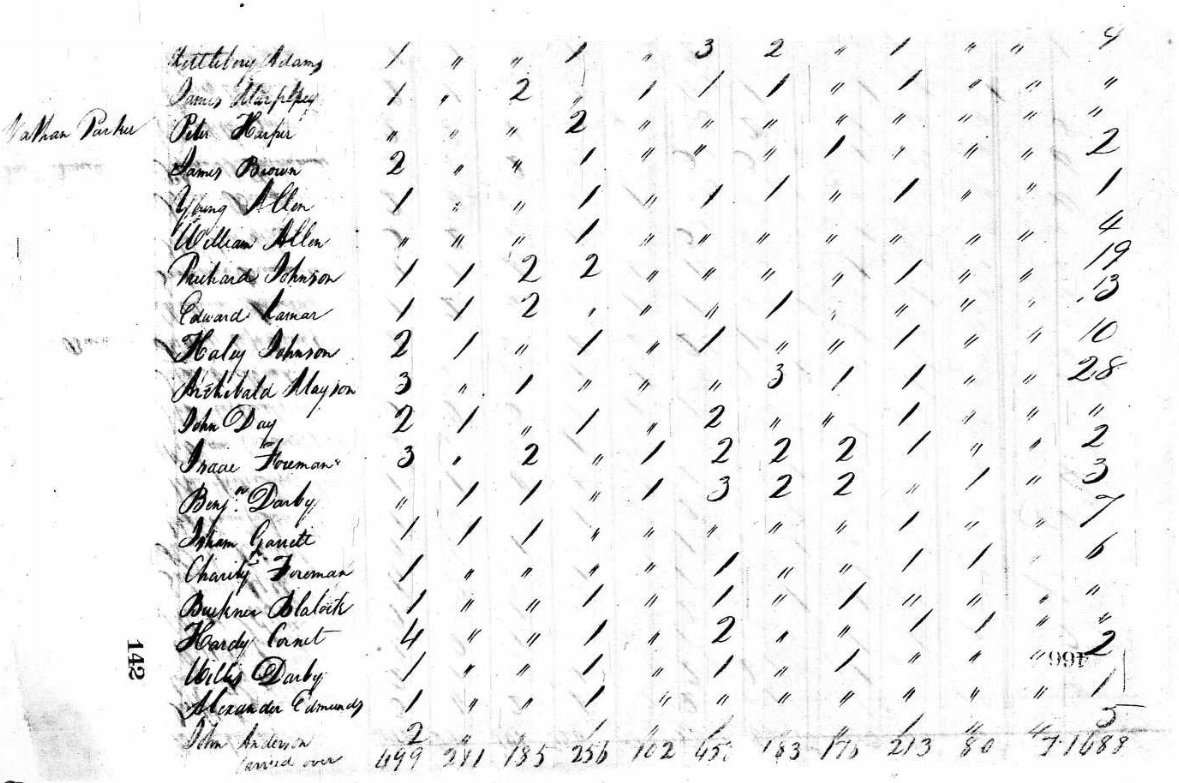 Adams 1 " " 1 " 3 2 " 1 " " 4
James Murphrey 1 " 2 " 1 1 1 " 1 " " "
Nathan Parker Peter Harper " " " 2 " " " " " " " "
James Brown 2 " " 1 " " " 1 " " " 2
Young Allen 1 " " 1 " 1 1 " 1 " " 1
William Allen " " " 1 " " " " " " " 4
Richard Johnson 1 1 2 2 " " " " 1 " " 19
Edward Lamar 1 1 2 " " " 1 " " " " 13
Haley Johnson 2 1 " 1 " 1 " " 1 " " 10
Archibald Mayson 3 " 1 " " " 3 1 1 " " 28
John Day 2 1 " 1 " 2 " " 1 " " "
Isaac Foreman 3 " 2 " 1 2 2 2 1 " " 2
Benjn. Darby " 1 1 " 1 3 2 2 " 1 " 3
Isham Garrett 1 1 1 " " " " " 1 " " 7
Charity Foreman 1 " " " " 1 " " 1 1 " 6
Buckner Blalock 1 " " 1 " 1 " 1 " " " "
Hardy Cornet 4 " " 1 " 2 " " 1 1 " "
142 Willis Darby 1 " " 1 " 1 " 1 " " " 2
Alexander Edmunds 1 " " 1 " " " " " " " 1
John Anderson 2 5
Carried over 499 241 185 256 102 183 175 213 80 47 1688